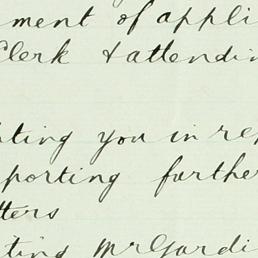 ment of appli
Clerk & attendin
ting you in rep
porting further
tters
ting Mr Gardi